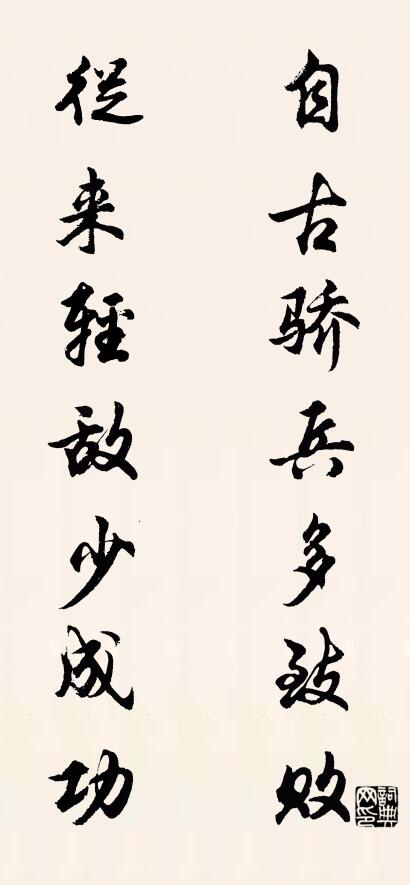 自古骄兵多致败
從来輕敌少成功
詞典
网印